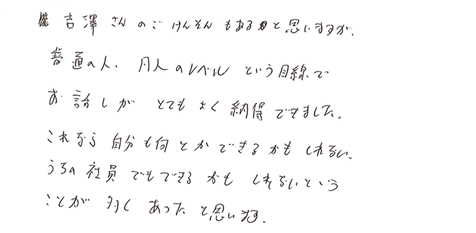 吉澤さんのごけんそんもあるかと思いますが、
普通の人、凡人のレベルという目線で
お話しがとてもよく納得できました。
これなら自分も何とかできるかもしれない。
うちの社員でもできるかもしれないという
ことが多しあったと思います。